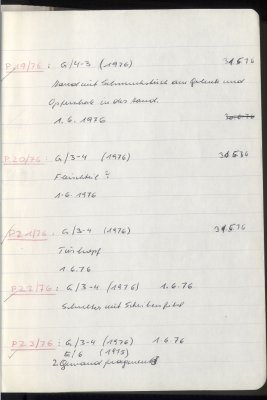 P.19/76 : G/4-3 (1976) 31.5.76
Hand mit Schmuckstück am Gelenk und
Opferschale in der Hand.
1.6.1976 30.5.76
P.20/76 : G/3-4 (1976) 31.5.76
?
1.6.1976
P.21/76 : G/3-4 (1976) 31.5.76
Türknopf
1.6.76
P.22/76 : G/3-4 (1976) 1.6.76
Schulter mit Scheibenfibel
P.23/76 : G/3-4 (1976) 1.6.76
E/6 (1975)
2 Gewandfragmente